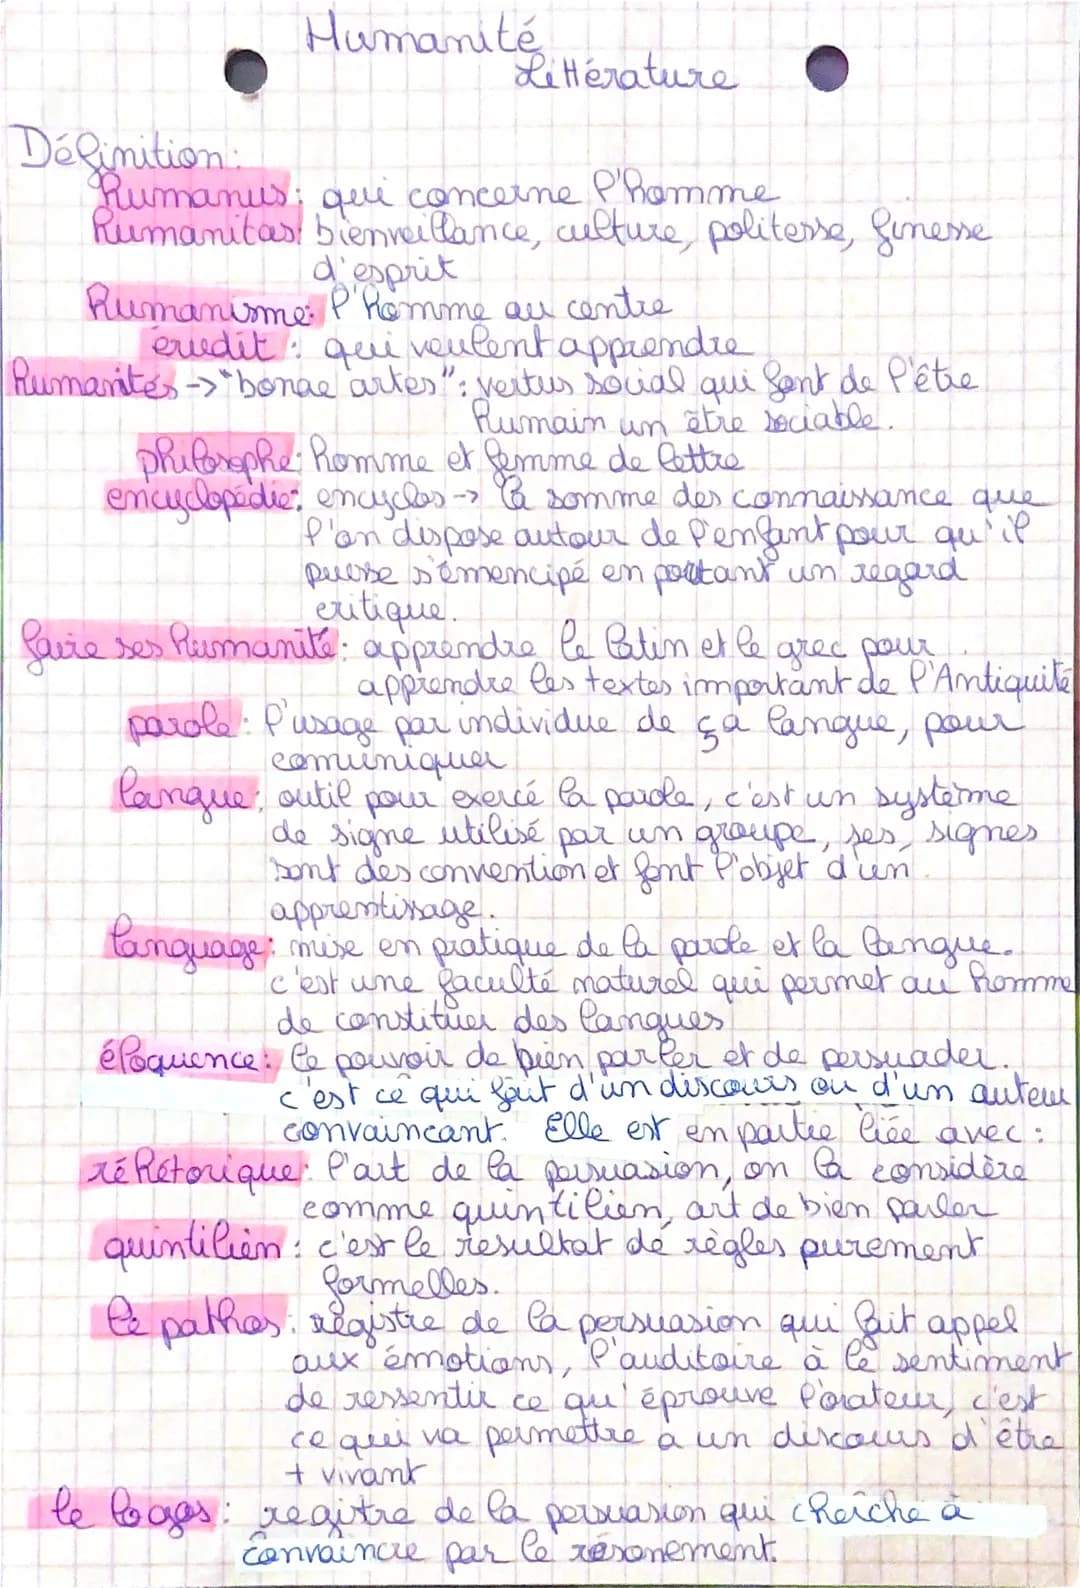 Humanité
Littérature
Définition:
humanus: qui concerne l'homme
humanitas: bienveillance, culture, politesse, finesse
d'esprit
humanisme: l'homme au centre
érudit: qui veulent apprendre
humanités -> "bonae artes": vertus social qui font de l'être
humain un être sociable.
philosophe: homme et femme de lettre
encyclopédie: encyclos -> la somme des connaissance que
l'on dispose autour de l'enfant pour qu'il
puisse s'émencipé en portant un regard
critique.
faire ses humanité: apprendre le latin et le grec pour
apprendre les textes important de l'Antiquité
parole: l'usage par individue de sa langue, pour
comuniquer
langue: outil pour exercé la parole, c'est un système
de signe utilisé par un groupe, ses signes
sont des convention et font l'objet d'un
apprentissage.
language: mise en pratique de la parole et la langue.
c'est une faculté naturel qui permet au homme
de constituer des langues
éloquence: le pouvoir de bien parler et de persuader.
c'est ce qui fait d'un discours ou d'un auteur
convaincant. Elle est en partie liée avec:
réhétorique: l'art de la persuasion, on la considère
comme quintilien, art de bien parler
quintilien: c'est le résultat de règles purement
formelles.
le pathos: régistre de la persuasion qui fait appel
aux émotions, l'auditoire à le sentiment
de ressentir ce qu'éprouve l'orateur, c'est
ce qui va permettre a un discours d'être
+ vivant
le logos: registre de la persuasion qui cherche à
convaincre par le résonement.